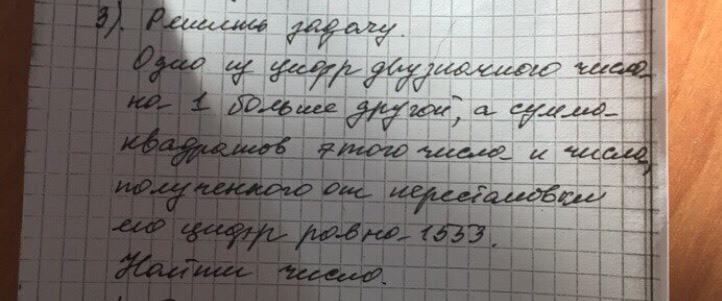 3). Решить задачу.
Одно из цифр двузначного числа
на 1 больше другой, а сумма
квадратов этого числа и числа,
полученного от перестановки
его цифр равна 1553.
Найти число.